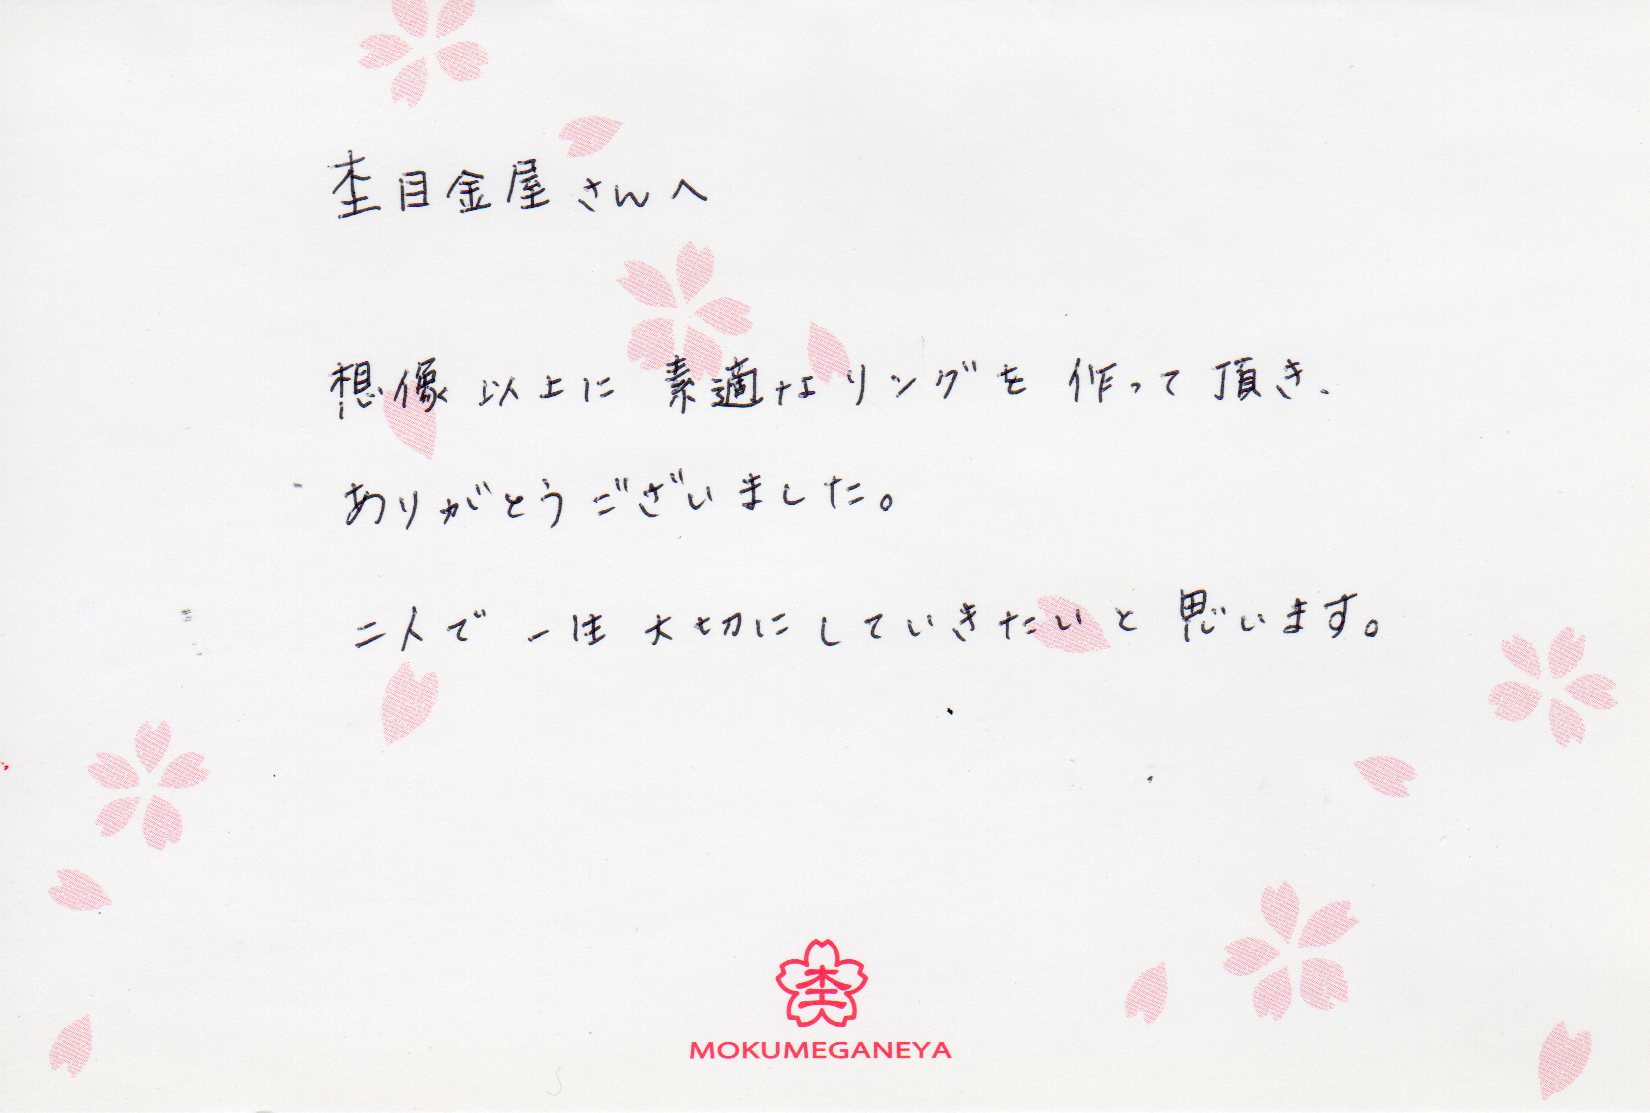 杢目金屋さんへ
想像以上に素適なリングを作って頂き、
ありがとうございました。
二人で一生大切にしていきたいと思います。
杢
MOKUMEGANEYA